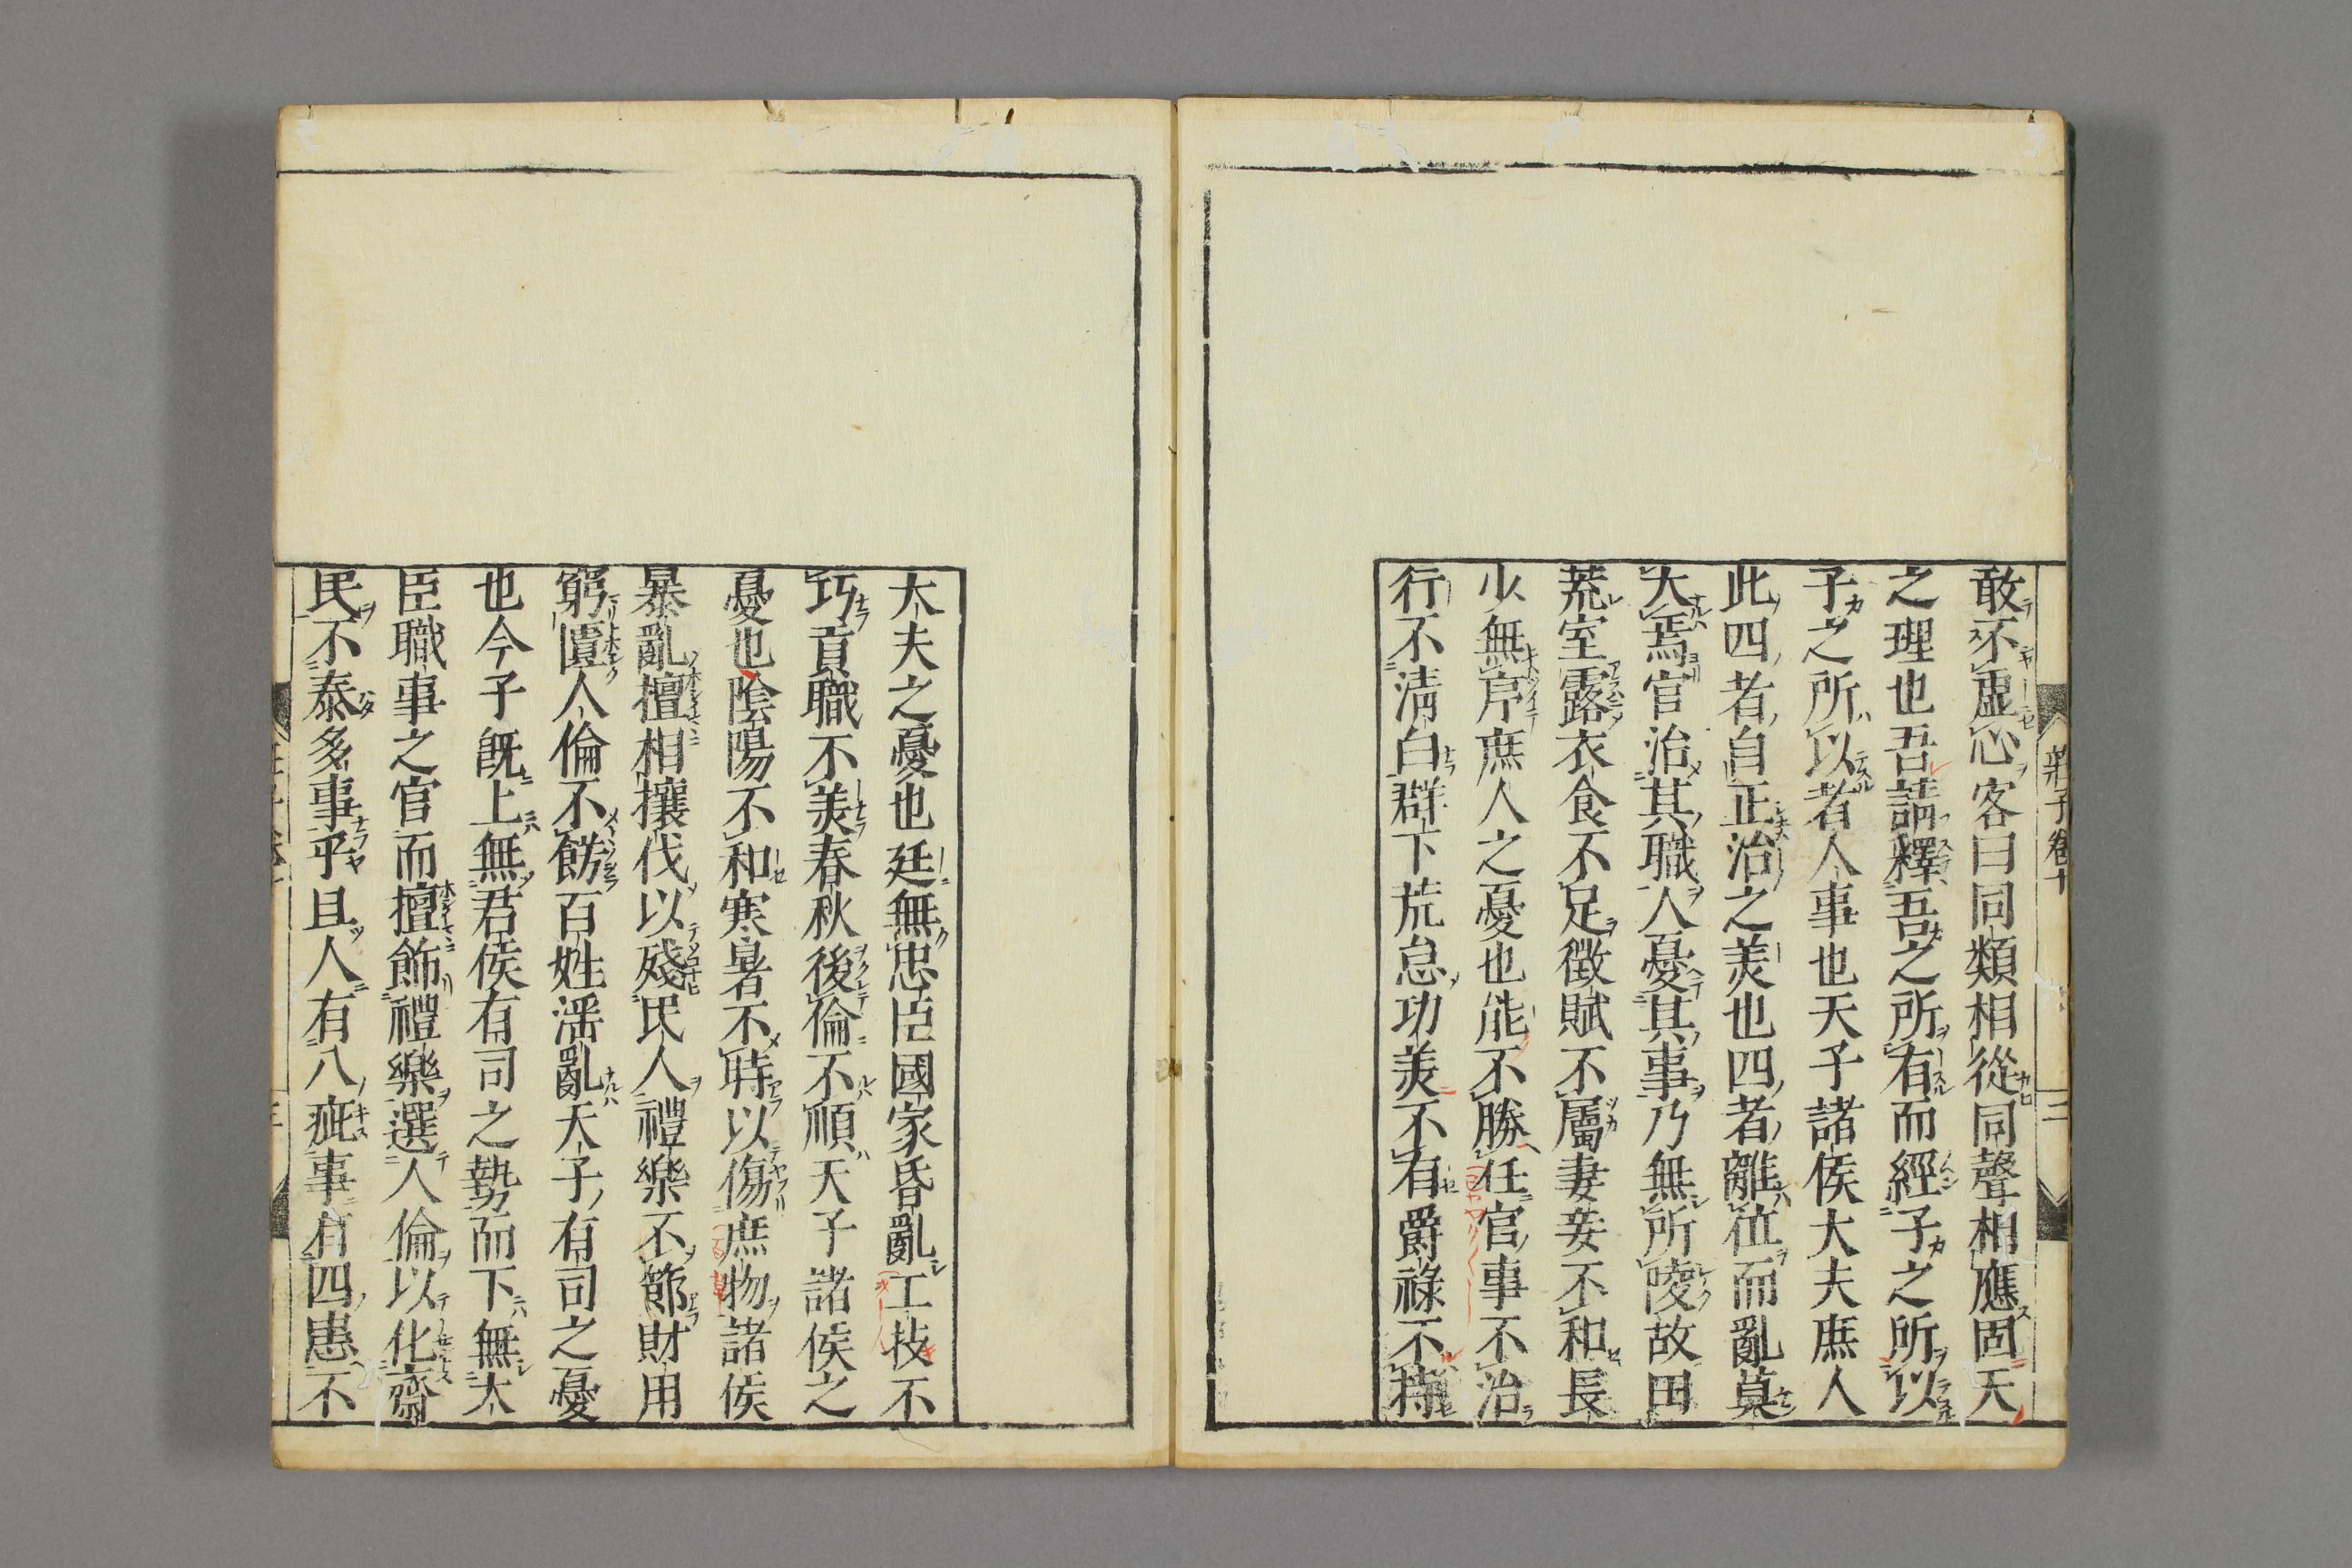 敢不虛心客曰同類相從同聲相應固天
之理也吾請釋吾之所有而經子之所以
子之所以者人事也天子諸侯大夫庶人
此四者自正治之美也四者離位而亂莫
大焉官治其職人憂其事乃無所陵故田
荒室露衣食不足徵賦不屬妻妾不和長
少無序庶人之憂也能不勝任官事不治
行不清白群下荒怠功美不有爵祿不持
大夫之憂也廷無忠臣國家昏亂工技不
巧貢職不美春秋後倫不順天子諸侯之
憂也陰陽不和寒暑不時以傷庶物諸侯
暴亂擅相攘伐以殘民人禮樂不節財用
窮匱人倫不飭百姓淫亂天子有司之憂
也今子既上無君侯有司之勢而下無大
臣職事之官而擅飾禮樂選人倫以化齋
民不泰多事乎且人有八疵事有四患不
莊子卷十